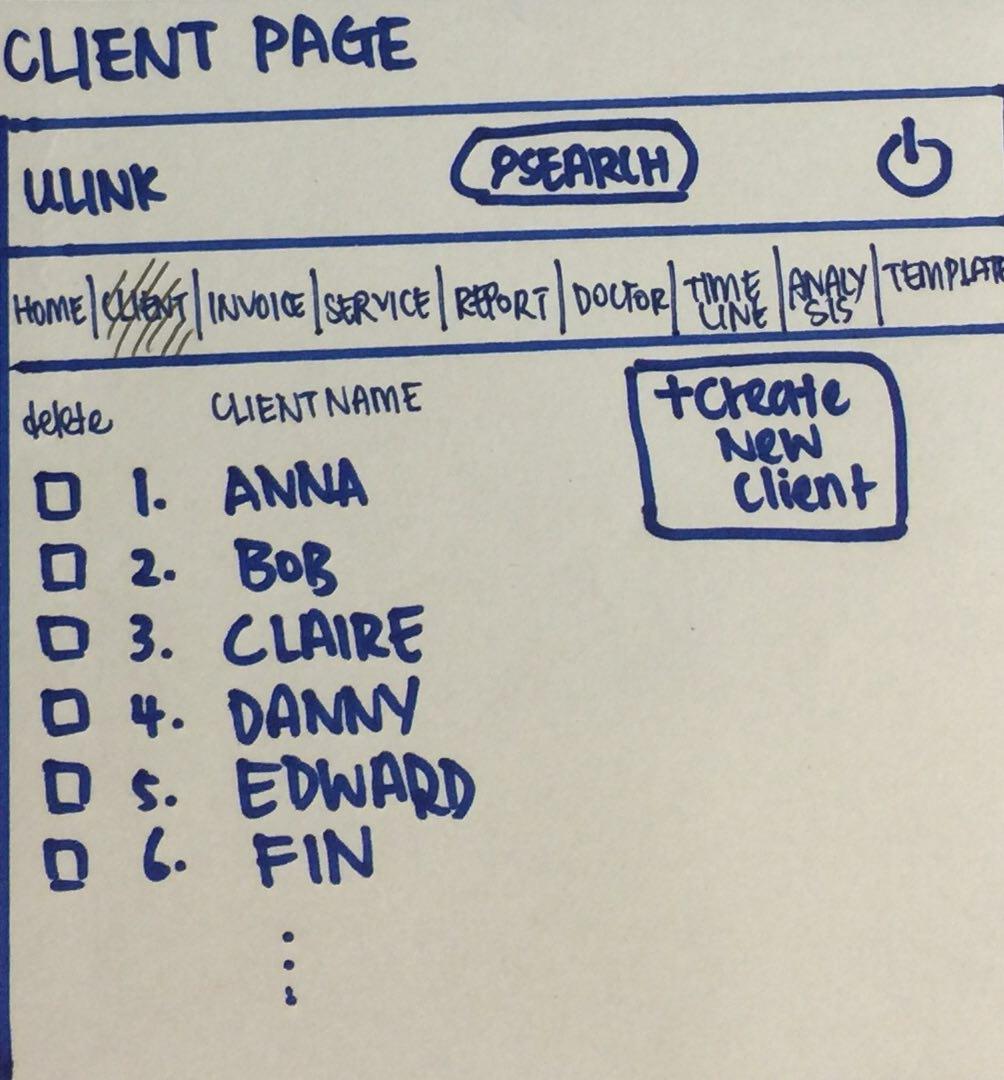 CLIENT PAGE
ULINK SEARCH
HOME | CLIENT | INVOICE | SERVICE | REPORT | DOCTOR | TIME LINE | ANALY SIS | TEMPLATE
delete CLIENT NAME
+Create
New
Client
1. ANNA
2. BOB
3. CLAIRE
4. DANNY
5. EDWARD
6. FIN